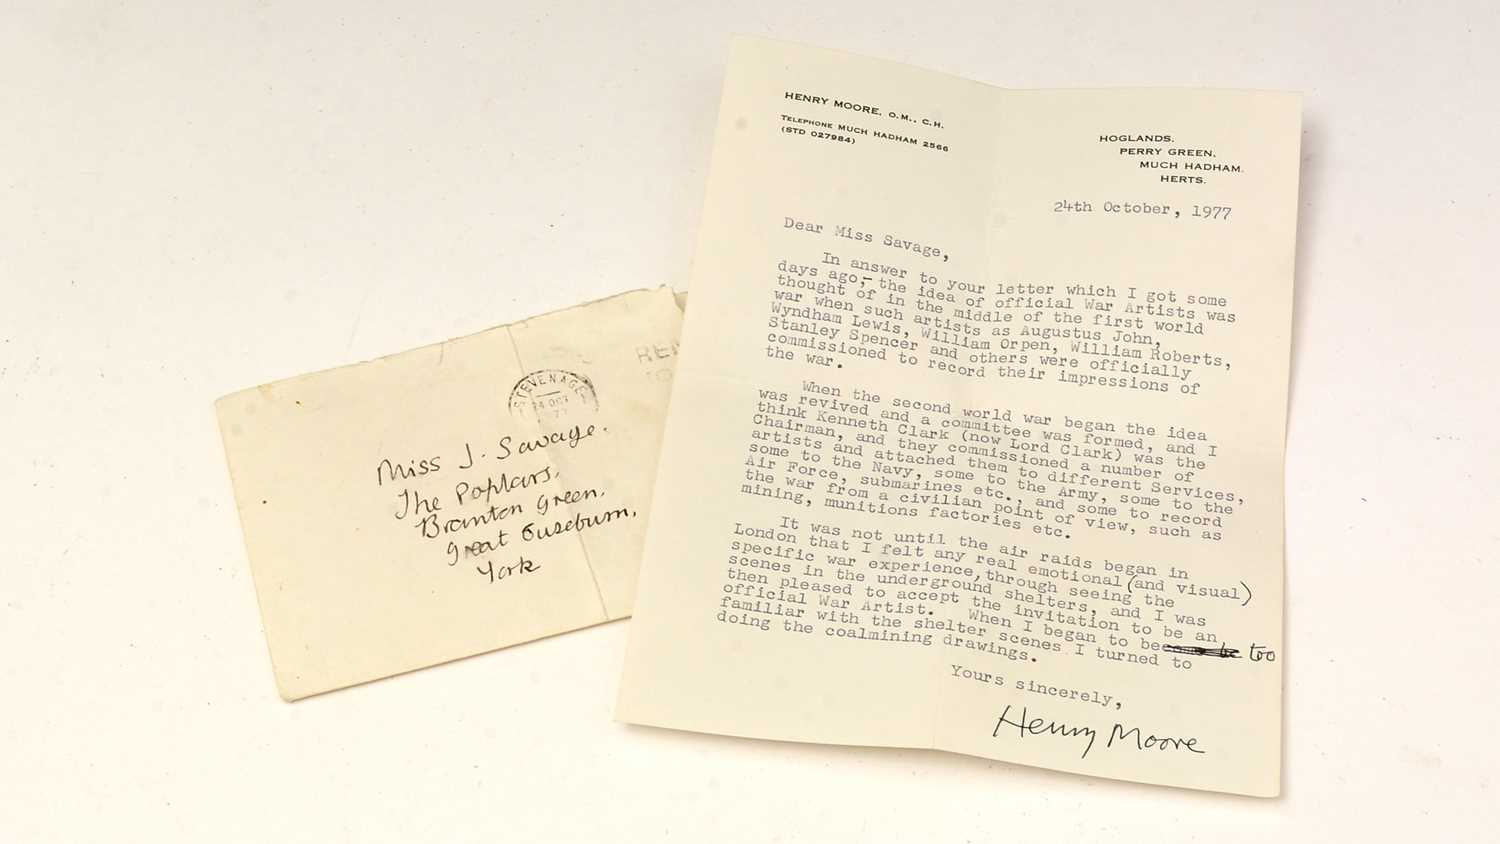 HENRY MOORE, O.M., C.H.
TELEPHONE MUCH HADHAM 2566
(STD 027984)
HOGLANDS.
PERRY GREEN.
MUCH HADHAM.
HERTS.
24th October, 1977
Dear Miss Savage,
In answer to your letter which I got some
days ago,- the idea of official War Artists was
thought of in the middle of the first world
war when such artists as Augustus John,
Wyndham Lewis, William Orpen, William Roberts,
Stanley Spencer and others were officially
commissioned to record their impressions of
the war.
When the second world war began the idea
was revived and a committee was formed, and I
think Kenneth Clark (now Lord Clark) was the
Chairman, and they commissioned a number of
artists and attached them to different Services,
some to the Navy, some to the Army, some to the
Air Force, submarines etc., and some to record
the war from a civilian point of view, such as
mining, munitions factories etc.
It was not until the air raids began in
London that I felt any real emotional (and visual)
specific war experience, through seeing the
scenes in the underground shelters, and I was
then pleased to accept the invitation to be an
official War Artist. When I began to be too
familiar with the shelter scenes I turned to
doing the coalmining drawings.
Yours sincerely,
Henry Moore
STEVENAGE
24 OCT
Miss J. Savage.
The Poplars,
Branton Green,
Great Ouseburn,
York